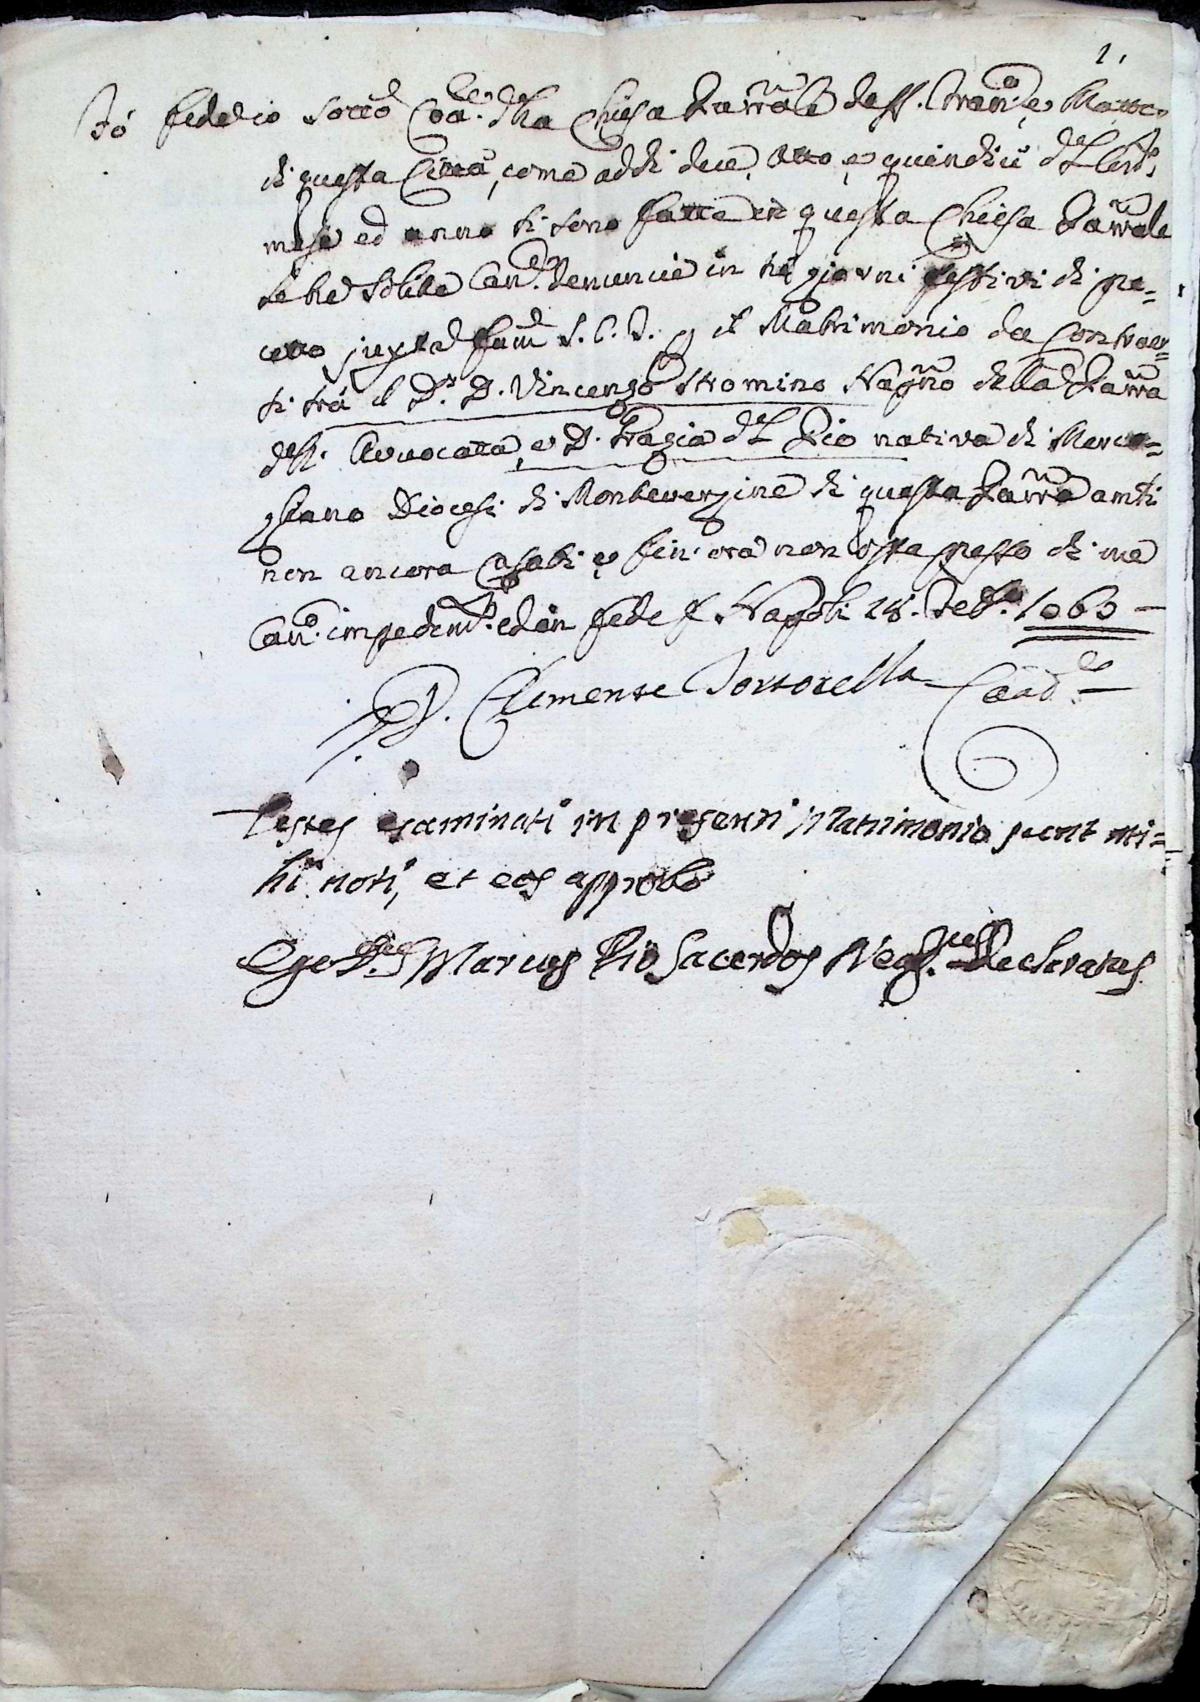 1.
Fò fede io sotto Coad.re della Chiesa Parrãle de SS. Fran.co e Matteo
di questa Città, come addi dece, otto, e quindici del
mese ed anno si sono fatte in questa Chiesa Parrãle
le tre solite Can.e denuncie in tre giorni festivi di pre=
cetto juxta formã S. C. T. p il Matrimonio da contraer=
si trà il D.r D. Vincenzo Stromino Napñro della Parrã
dell' Avvocata, e D. Grazia del Pio nativa di Merco=
gliano Diocesi di Montevergine di questa Parrã ambi
non ancora casati e fin' ora non osta presso di me
Can.co impedim.to ed in fede Napoli 18.
D. Clemente Tortorella Coad.re
Testes examinati in presenti Matrimonio sunt mi=
hi noti, et eos approbo
Ego D. Marcus Pio Sacerdos Neap.